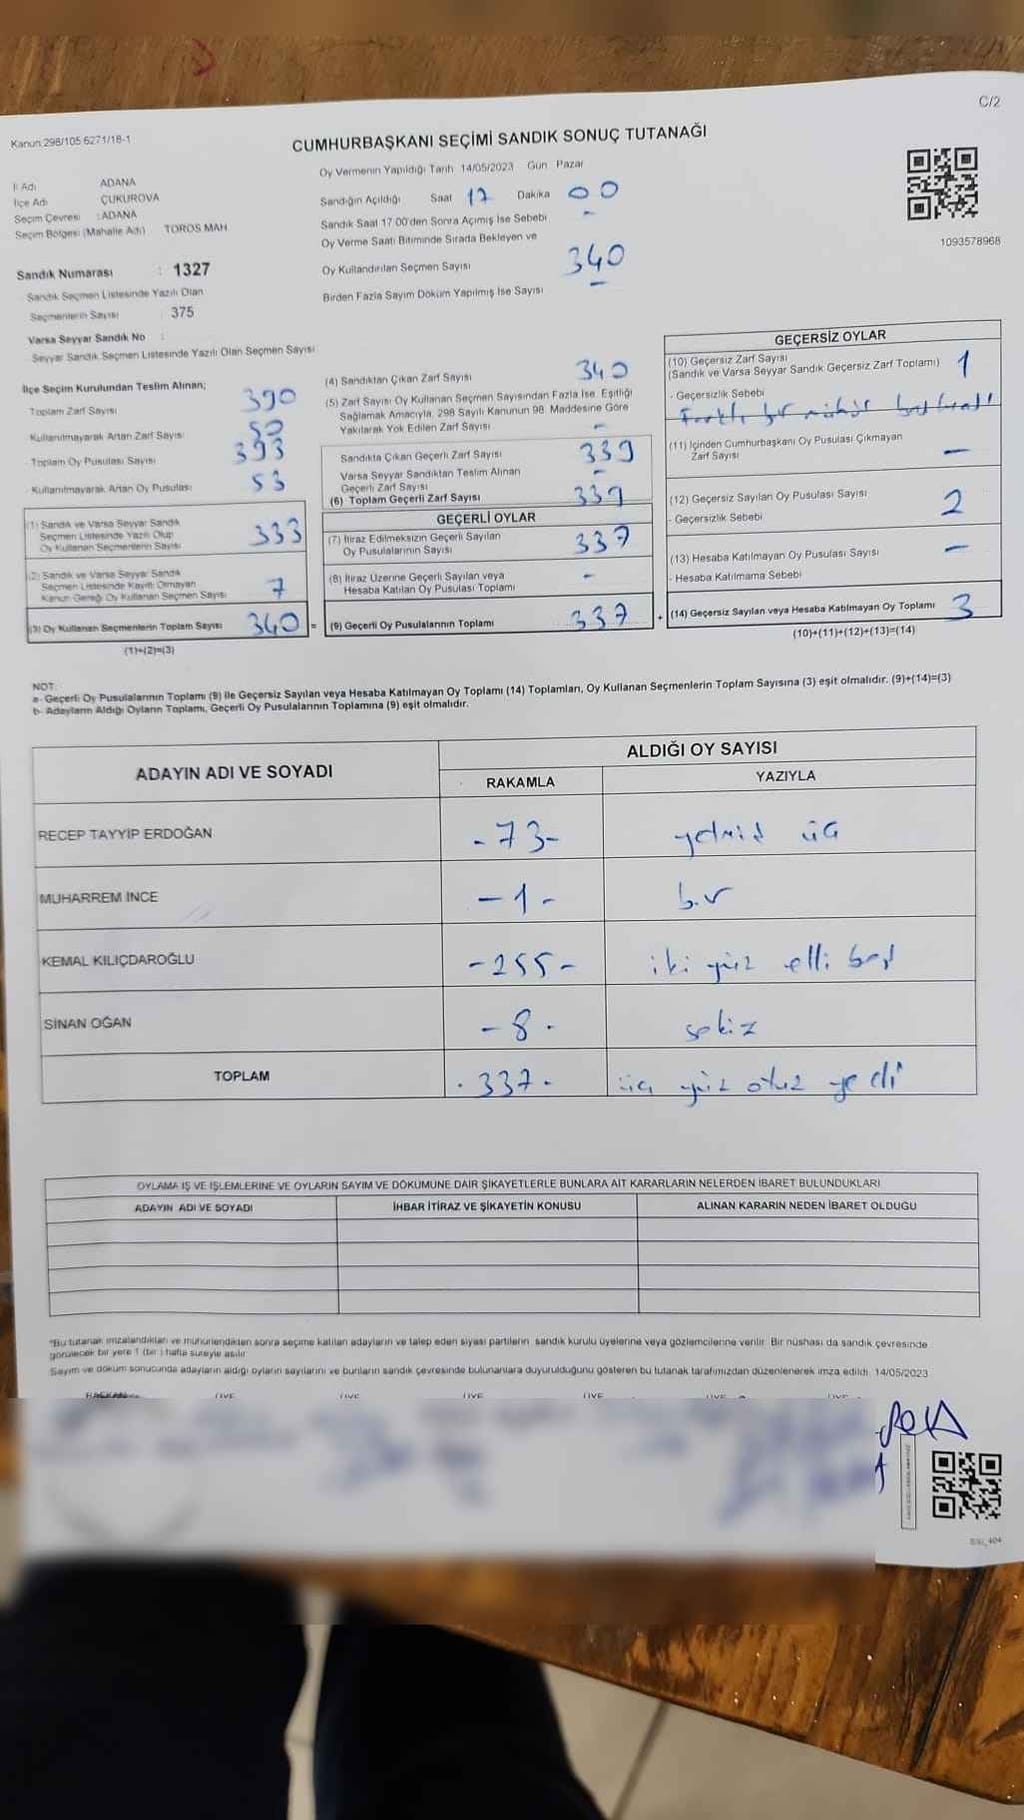 C/2
Kanun 298/105 6271/18-1
CUMHURBAŞKANI SEÇİMİ SANDIK SONUÇ TUTANAĞI
Oy Vermenin Yapıldığı Tarih 14/05/2023 Gün Pazar
İl Adı ADANA
İlçe Adı ÇUKUROVA
Seçim Çevresi : ADANA
Seçim Bölgesi (Mahalle Adı) TOROS MAH
Sandık Numarası : 1327
Sandık Seçmen Listesinde Yazılı Olan
Seçmenlerin Sayısı : 375
Varsa Seyyar Sandık No :
Seyyar Sandık Seçmen Listesinde Yazılı Olan Seçmen Sayısı
Sandığın Açıldığı Saat 17 Dakika 00
Sandık Saat 17.00'den Sonra Açımış İse Sebebi -
Oy Verme Saati Bitiminde Sırada Bekleyen ve
Oy Kullandırılan Seçmen Sayısı 340
Birden Fazla Sayım Döküm Yapılmış İse Sayısı -
1093578968
İlçe Seçim Kurulundan Teslim Alınan;
Toplam Zarf Sayısı 390
Kullanılmayarak Artan Zarf Sayısı 50
Toplam Oy Pusulası Sayısı 393
Kullanılmayarak Artan Oy Pusulası 53
(1) Sandık ve Varsa Seyyar Sandık
Seçmen Listesinde Yazılı Olup
Oy Kullanan Seçmenlerin Sayısı 333
(2) Sandık ve Varsa Seyyar Sandık
Seçmen Listesinde Kayıtlı Olmayan
Kanun Gereği Oy Kullanan Seçmen Sayısı 7
(3) Oy Kullanan Seçmenlerin Toplam Sayısı 340 =
(1)+(2)=(3)
(4) Sandıktan Çıkan Zarf Sayısı 340
(5) Zarf Sayısı Oy Kullanan Seçmen Sayısından Fazla İse, Eşitliği
Sağlamak Amacıyla, 298 Sayılı Kanunun 98. Maddesine Göre
Yakılarak Yok Edilen Zarf Sayısı -
Sandıkta Çıkan Geçerli Zarf Sayısı 339
Varsa Seyyar Sandıktan Teslim Alınan
Geçerli Zarf Sayısı -
(6) Toplam Geçerli Zarf Sayısı 339
GEÇERLİ OYLAR
(7) İtiraz Edilmeksizin Geçerli Sayılan
Oy Pusulalarının Sayısı 337
(8) İtiraz Üzerine Geçerli Sayılan veya
Hesaba Katılan Oy Pusulası Toplamı -
(9) Geçerli Oy Pusulalarının Toplamı 337 +
GEÇERSİZ OYLAR
(10) Geçersiz Zarf Sayısı
(Sandık ve Varsa Seyyar Sandık Geçersiz Zarf Toplamı) 1
- Geçersizlik Sebebi
Farklı bir mühür
(11) İçinden Cumhurbaşkanı Oy Pusulası Çıkmayan
Zarf Sayısı -
(12) Geçersiz Sayılan Oy Pusulası Sayısı 2
- Geçersizlik Sebebi
(13) Hesaba Katılmayan Oy Pusulası Sayısı -
- Hesaba Katılmama Sebebi
(14) Geçersiz Sayılan veya Hesaba Katılmayan Oy Toplamı 3
(10)+(11)+(12)+(13)=(14)
NOT:
a- Geçerli Oy Pusulalarının Toplamı (9) ile Geçersiz Sayılan veya Hesaba Katılmayan Oy Toplamı (14) Toplamları, Oy Kullanan Seçmenlerin Toplam Sayısına (3) eşit olmalıdır. (9)+(14)=(3)
b- Adayların Aldığı Oyların Toplamı, Geçerli Oy Pusulalarının Toplamına (9) eşit olmalıdır.
ADAYIN ADI VE SOYADI ALDIĞI OY SAYISI
RAKAMLA YAZIYLA
RECEP TAYYİP ERDOĞAN -73- yetmiş üç
MUHARREM İNCE -1- bir
KEMAL KILIÇDAROĞLU -255- iki yüz elli beş
SİNAN OĞAN -8- sekiz
TOPLAM -337- üç yüz otuz yedi
OYLAMA İŞ VE İŞLEMLERİNE VE OYLARIN SAYIM VE DÖKÜMÜNE DAİR ŞİKAYETLERLE BUNLARA AİT KARARLARIN NELERDEN İBARET BULUNDUKLARI
ADAYIN ADI VE SOYADI İHBAR İTİRAZ VE ŞİKAYETİN KONUSU ALINAN KARARIN NEDEN İBARET OLDUĞU
*Bu tutanak imzalandıktan ve mühürlendikten sonra seçime katılan adayların ve talep eden siyasi partilerin sandık kurulu üyelerine veya gözlemcilerine verilir. Bir nüshası da sandık çevresinde
görülecek bir yere 1 (bir) hafta süreyle asılır.
Sayım ve döküm sonucunda adayların aldığı oyların sayılarını ve bunların sandık çevresinde bulunanlara duyurulduğunu gösteren bu tutanak tarafımızdan düzenlenerek imza edildi. 14/05/2023